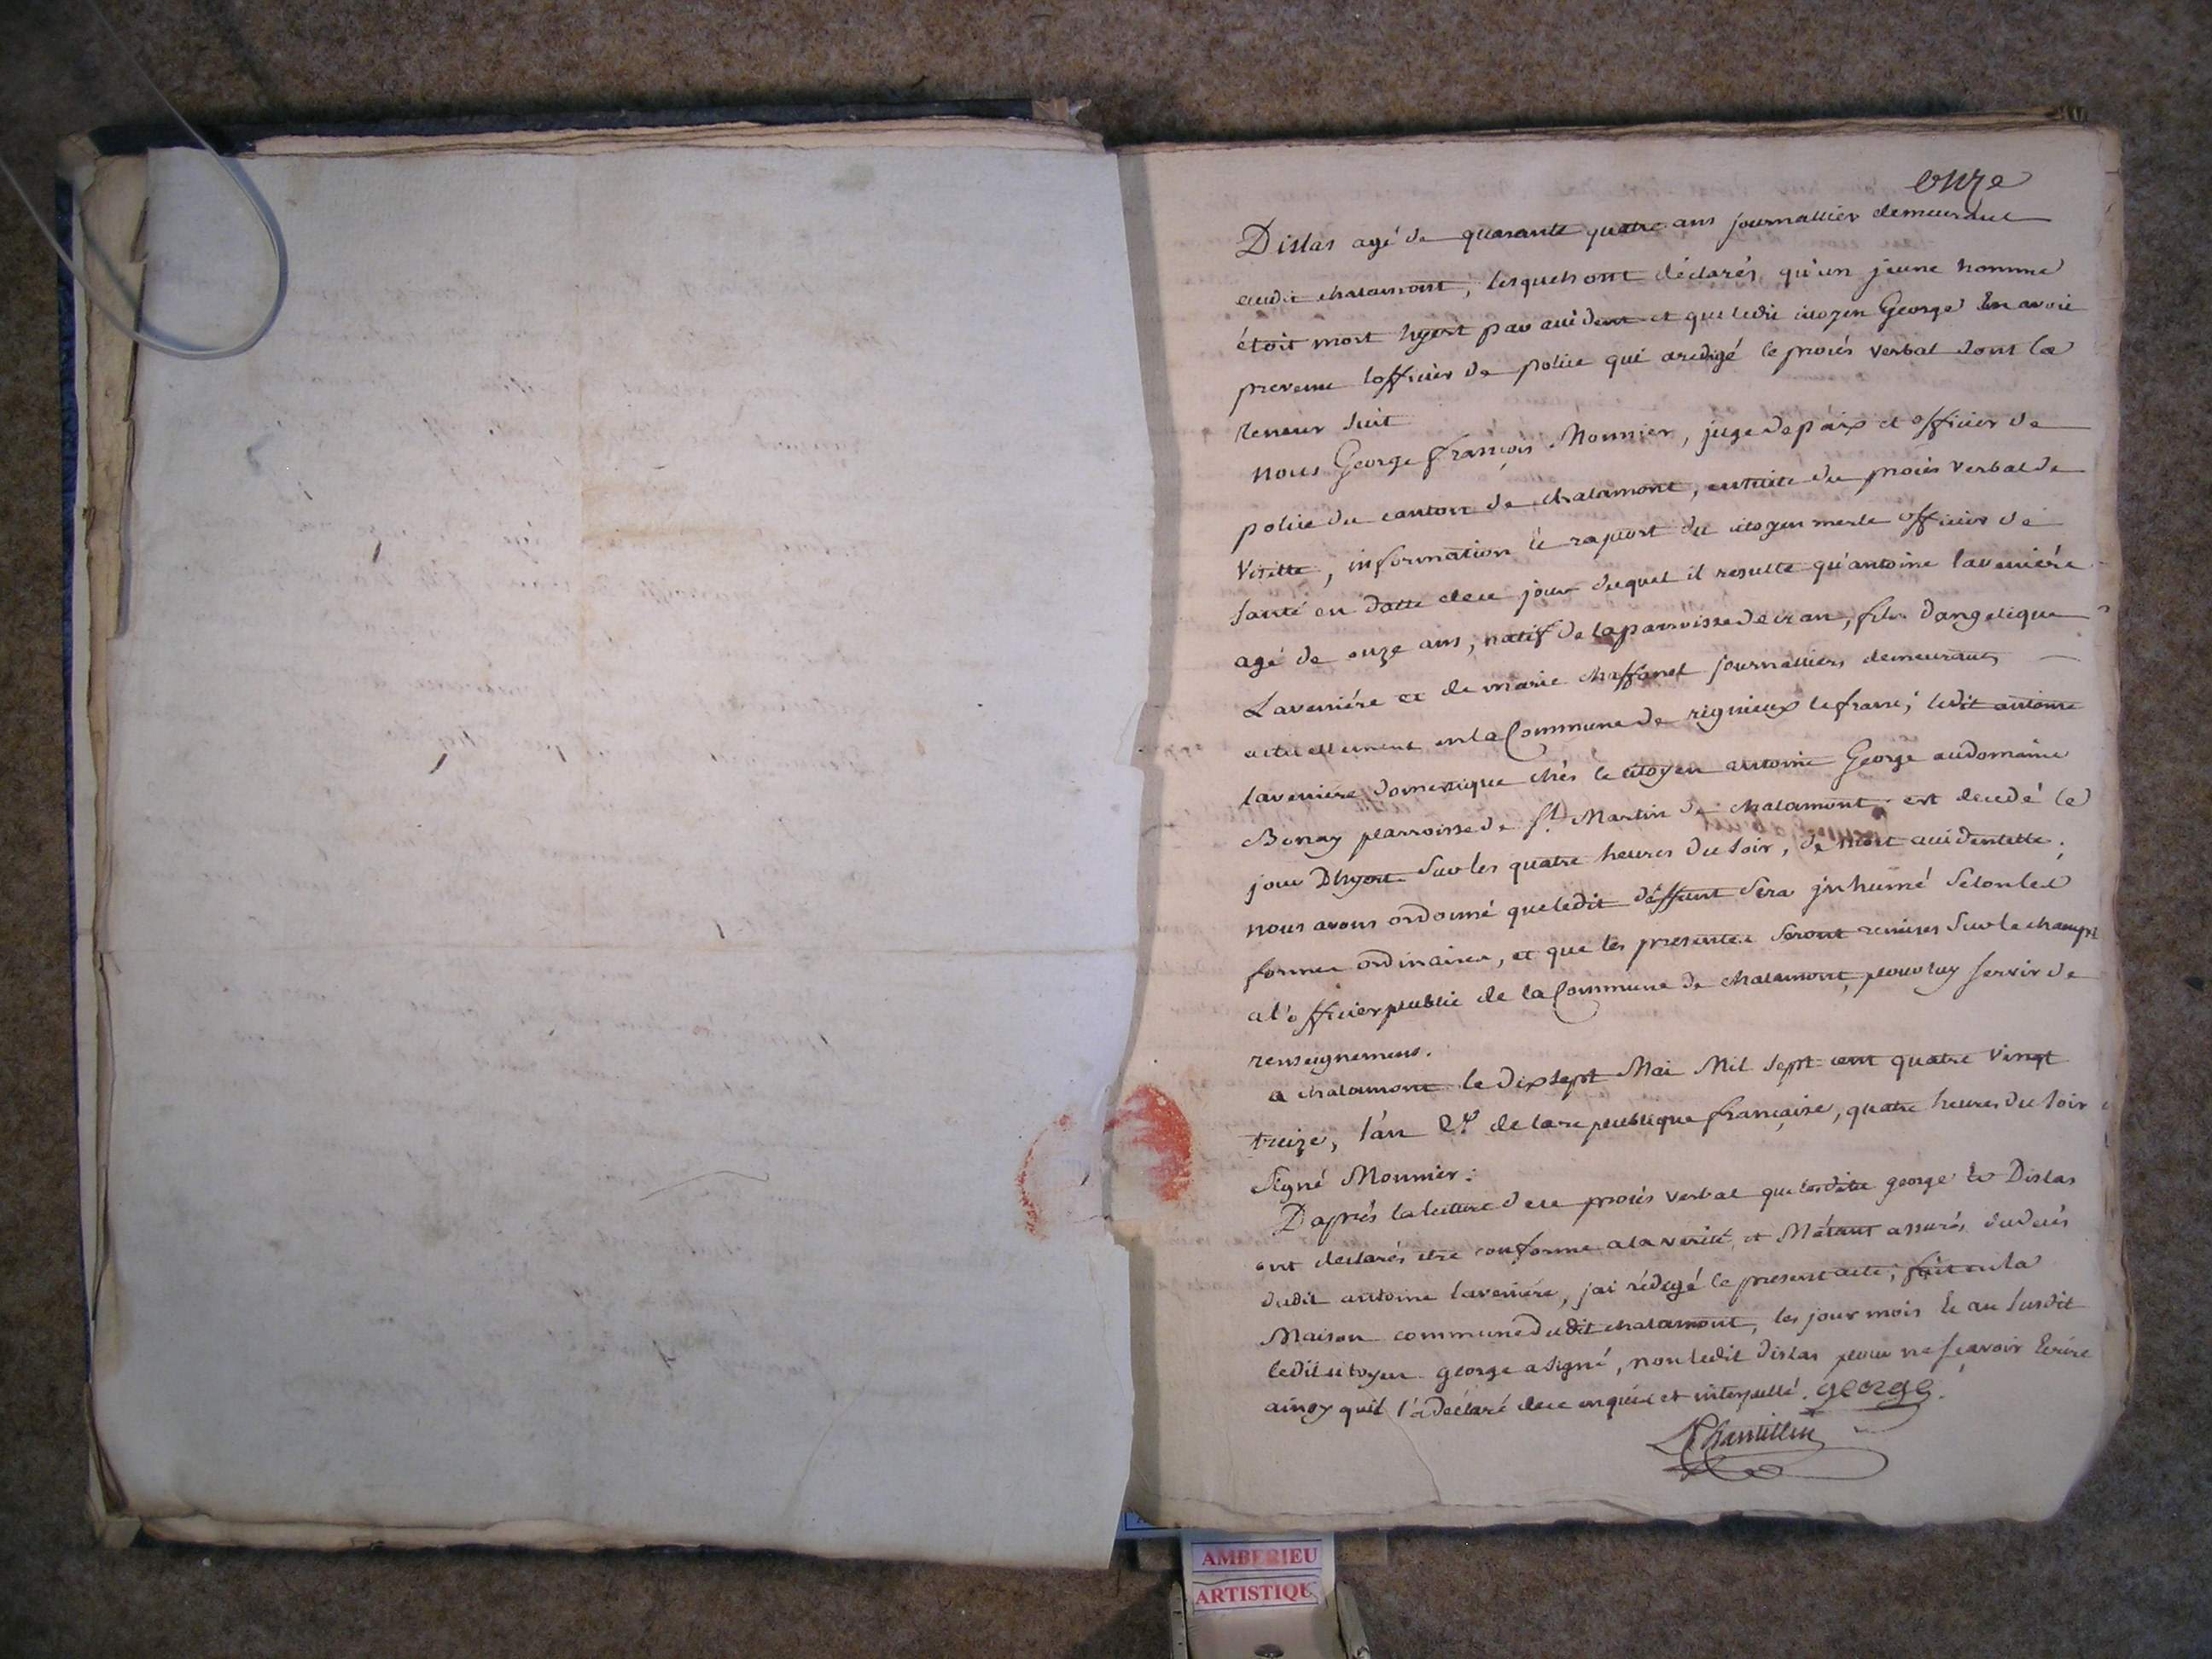 onze
Dislas agé de quarante quatre ans journallier demeurant
audit chalamont, lesquels ont déclarés qu'un jeune homme
étoit mort hyert par accident et que ledit citoyen George En avoit
prevenu l'officier de police qui a redigé le procés verbal dont la
teneur suit
nous George françois Monnier, juge de paix et officier de
police du canton de chalamont, ensuite du procés verbal de
Visitte, information & raport du citoyen merle officier de
santé en datte de ce jour duquel il resulte qu'antoine laverniére
agé de onze ans, natif de la parroisse de cran, fils d'angelique
Laverniére et de marie chaffanel journalliers demeurants
actuellement en la Commune de rignieux lefranc; ledit antoine
laverniére domestique chés le citoyen antoine George au domaine
Bonay parroisse de St. Martin de chalamont, est decedé le
jour D'hyert sur les quatre heures du soir, de mort accidentelle.
nous avons ordonné que ledit déffunt sera jnhumé selon les
formes ordinaires, et que les presentes seront remises sur le champt
a l'officier public de la Commune de chalamont, pour luy servir de
renseignemens.
a chalamont le dix sept Mai Mil sept cent quatre vingt
treize, l'an 2e. de la republique française, quatre heures du soir
Signé Monnier.
D'aprés la lecture de ce procés verbal que lesdits george & Dislas
ont declarés etre conforme a la verité, et M'étant assurés du decés
dudit antoine laverniére, j'ai rédigé le present acte; fait en la
Maison commune dudit chalamont, les jour mois & an susdit
ledit citoyen george a signé, non ledit dislas pour ne sçavoir Ecrire
ainsy quil l'a déclaré de ce enquis et interpellé. george.
Chantillin
AMBERIEU
ARTISTIQUE